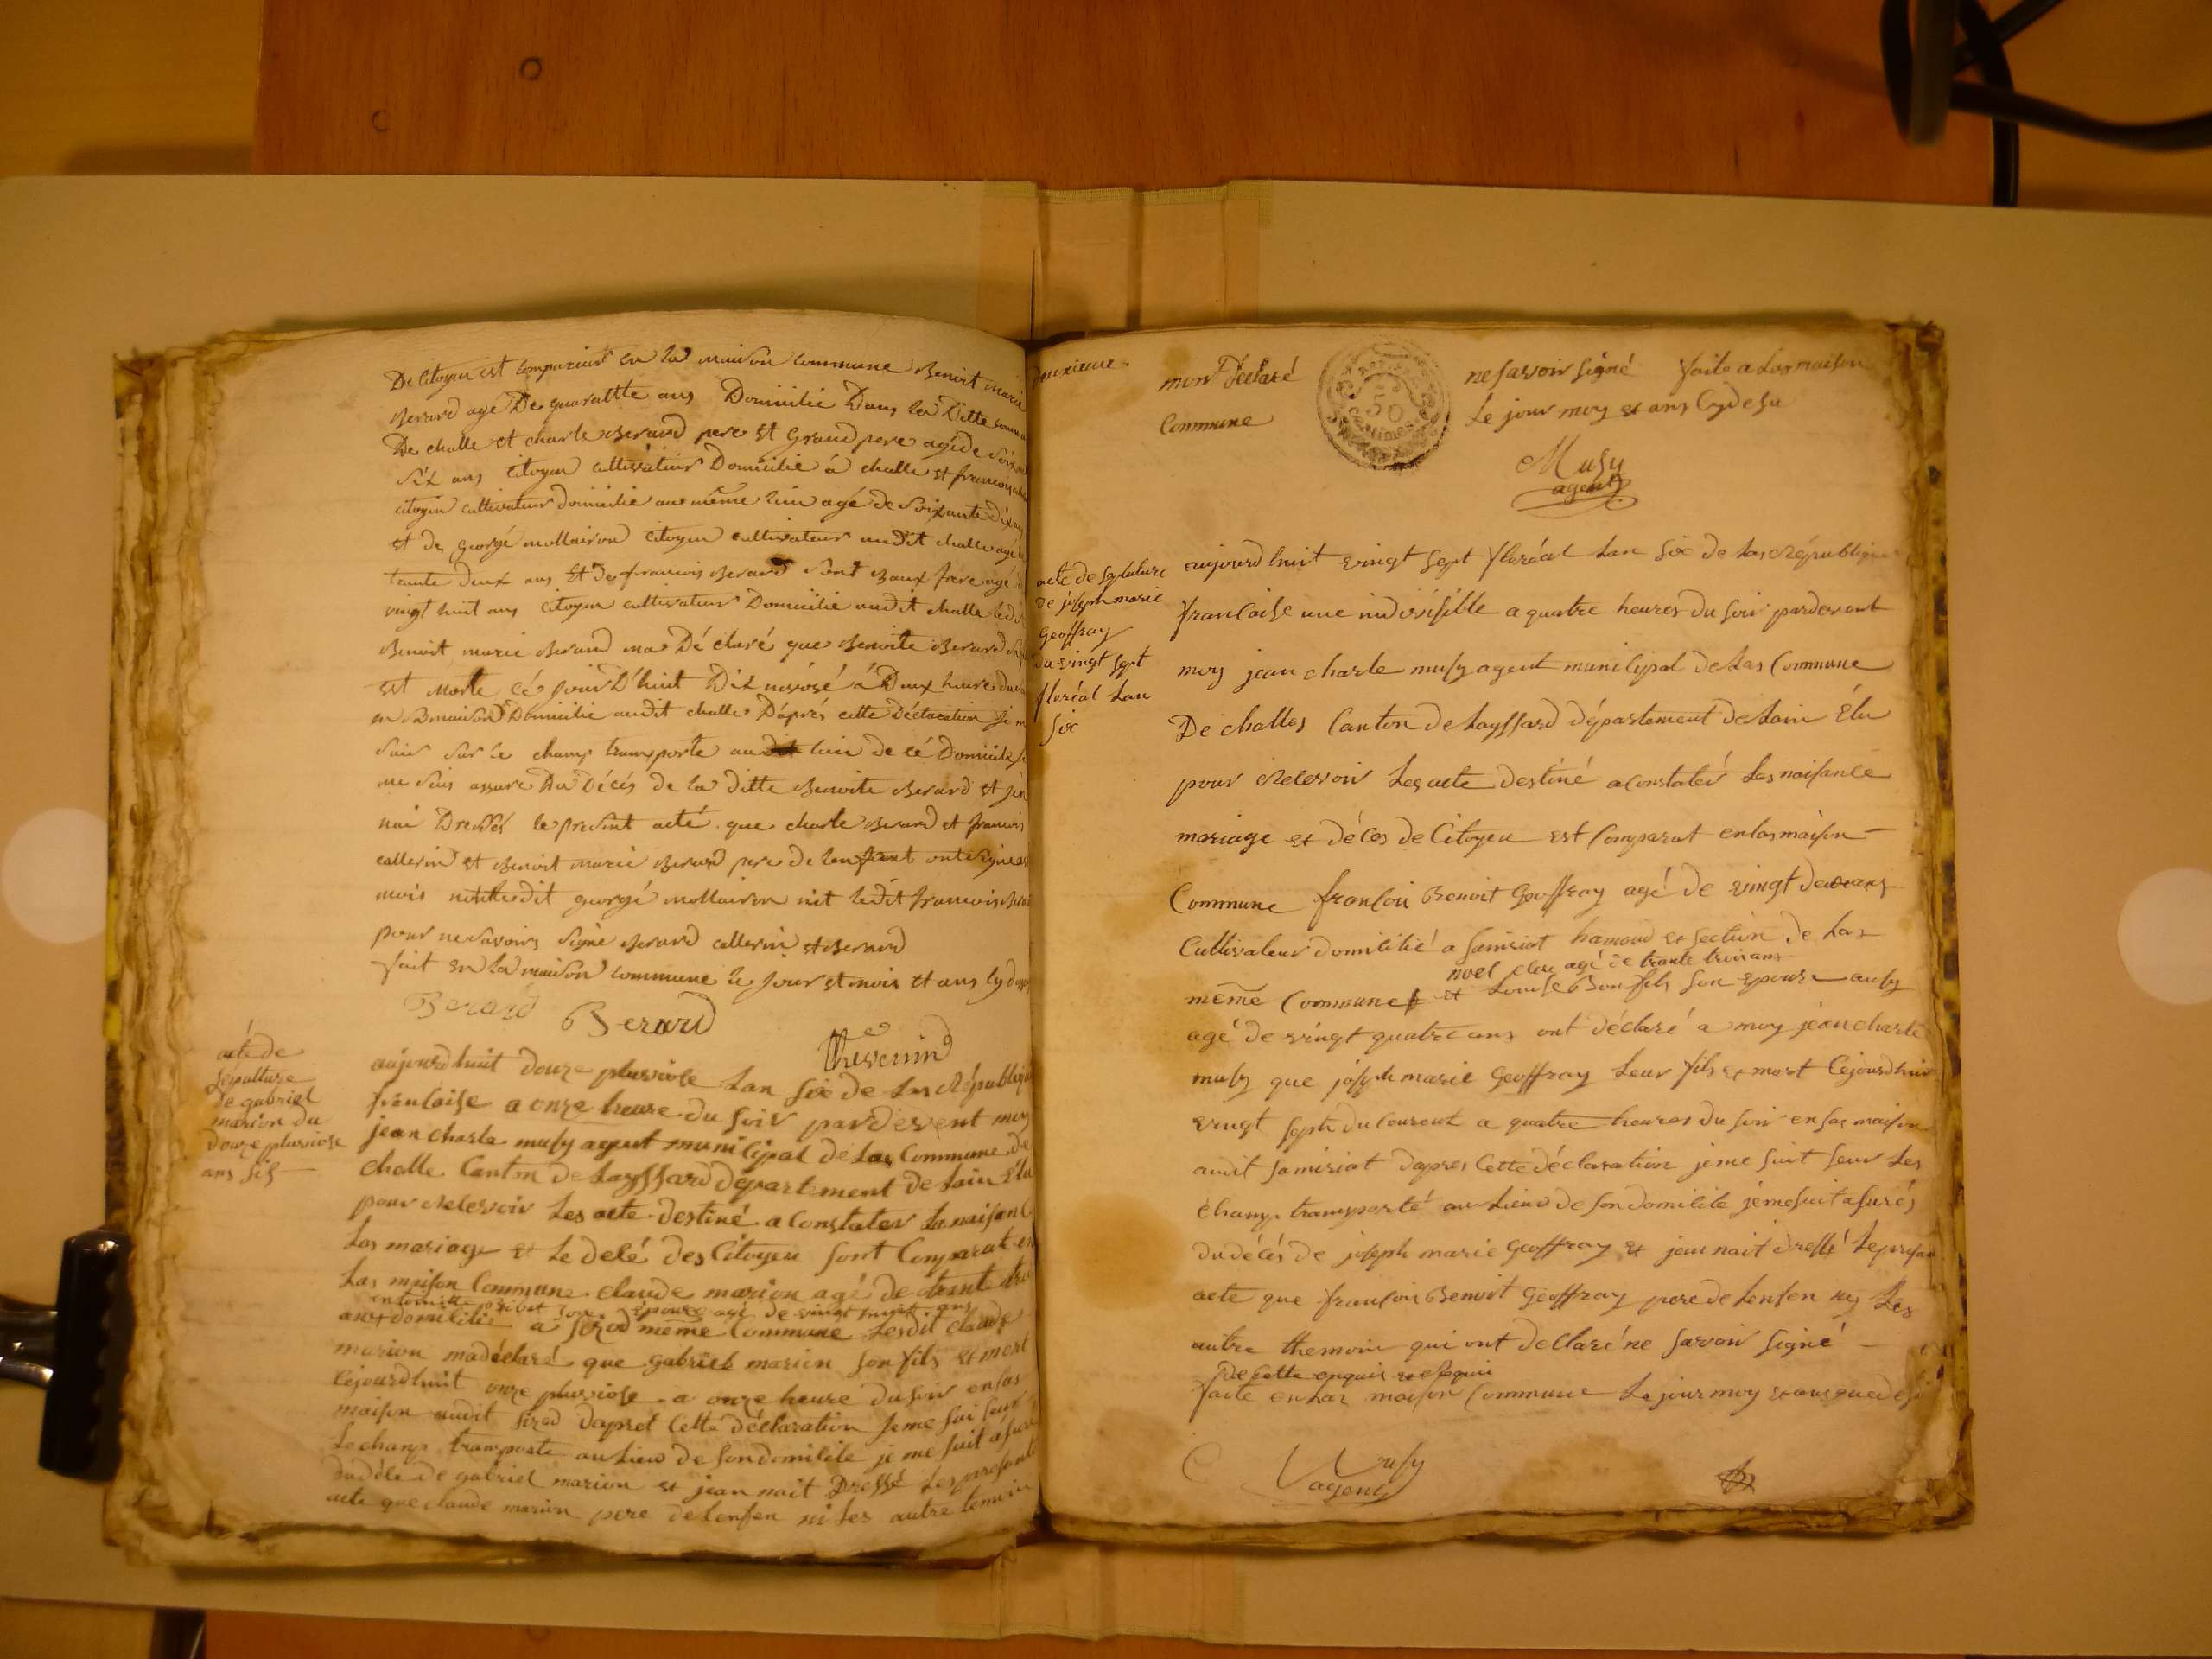 De Citoyen est Comparuit en la maison commune Benoit marie
Berard agé De quarattte ans Domicilié Dans la Ditte commu
De challe et charle Berard pere et Grand pere agé de soixan
six ans Citoyen cultivateur Domicilié á challe et francoy
citoyin cultivateur domicilié au même lieu agé de soixante dix an
et de georgé mollairon citoyen cultivateur audit challe agé
tante deux ans et De francois Berard sont Baux frere agé
vingt huit ans citoyen cultivateur Domicilié audit challe led
Benoit marie Berard ma Dé claré que Benoite Berard
est Morte cé jourd'huit Dix nivosé á Deux heure du
en sa maison Domicilié audit challe D'aprés cette Déclaration je m
suis sur le champ transporte au lieu de cé Domicile
me suis assuré Du Décés de la ditte Benoite Berard et jen
nai Dressés le present acté que charle Berard et francois
callerin et Benoit marie Berard pere de lenfant ont signe
mois dit georgé mollairon nit ledit francois Bera
pour ne savoirs signé Berard callerin et Berard
fait en la maison commune le jour et mois et ans cyd
Berard Berard
thevenin
acte de
sepulture
de gabriel
marion du
douze pluviose
ans six
aujourdhuit douze pluviose Lan six de Las Républiq
francaise a onze heure du soir pardevent moy
jean charle musy agent municipal de Las Commune de
challe Canton de Layssard département de Lain Élu
pour Recevoir Les acte destiné a Constater La naisanc
Las mariage et Le décé des Citoyen sont Comparat en
Las maison Commune claude marion agé de trent troi
epouse agé de vingt huit ans
ans domicilié a même Commune Lesdit claude
marion madéclaré que gabriel marion son fils et mort
Cejourdhuit onze pluviose a onze heure du soir ensas
maison audit dapret Cette déclaration Jeme sui seur
Le champ transporte au Lieu de son domicile je me suit asuré
dudéce de gabriel marion et jean nait Dressé Les presente
acte que claude marion pere de Lenfen ni les autre temoin
deuxieme
mont Déclaré ne savoir signé faite a Las maison
Commune Le jour moy et ans Cydesu
50
Musy
agent
acte de sepulture
de joseph marie
Geoffray
du vingt sept
floréal Lan
six
aujourdhuit vingt sept floréal Lan six de Las République
francaise une indivisible a quatre heures du soir pardevent
moy jean charle musy agent municipal de Las Commune
De challes Canton de Layssard département de Lain Élu
pour Recevoir Les acte destiné a Constater Las naisance
mariage et décés de Citoyen est Comparat enlas maison
Commune françoi Benoit Geoffray agé de vingt deux ans
Cultivateur domicilié a hamoud et section de Las
noel clerc agé de trante trois ans
même Commune et Louise Bonfils son epouse ausy
agé de vingt quatre ans ont déclaré a moy jean charle
musy que joseph marie Geoffray Leur fils et mort Cejourdhui
vingt septh du Courent a quatre heures du soir en sas maison
audit samisiat dapres Cette déclaration jeme suit seur Les
champ transporté au Lieu de son domicile jeme suit asurés
du décés de joseph marie Geoffray et jean nait dressé Le presen
acte que françoi Benoit Geoffray pere de Lenfen ny Les
autre themoin qui ont declaré ne savoir signé
De cette enquis
faite en Las maison Commune Le jour moy et ans que desu
Musy
agent